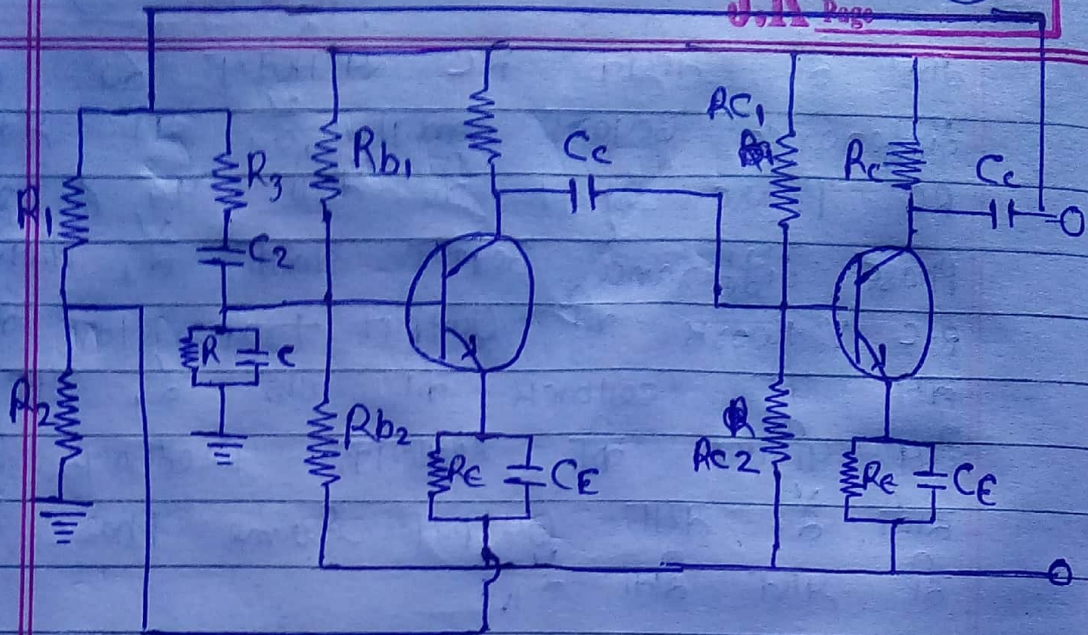 Page
R1
R3
C2
R
c
R2
Rb1
Rb2
Cc
RE
CE
RC1
Rc
Cc
RC2
RE
CE